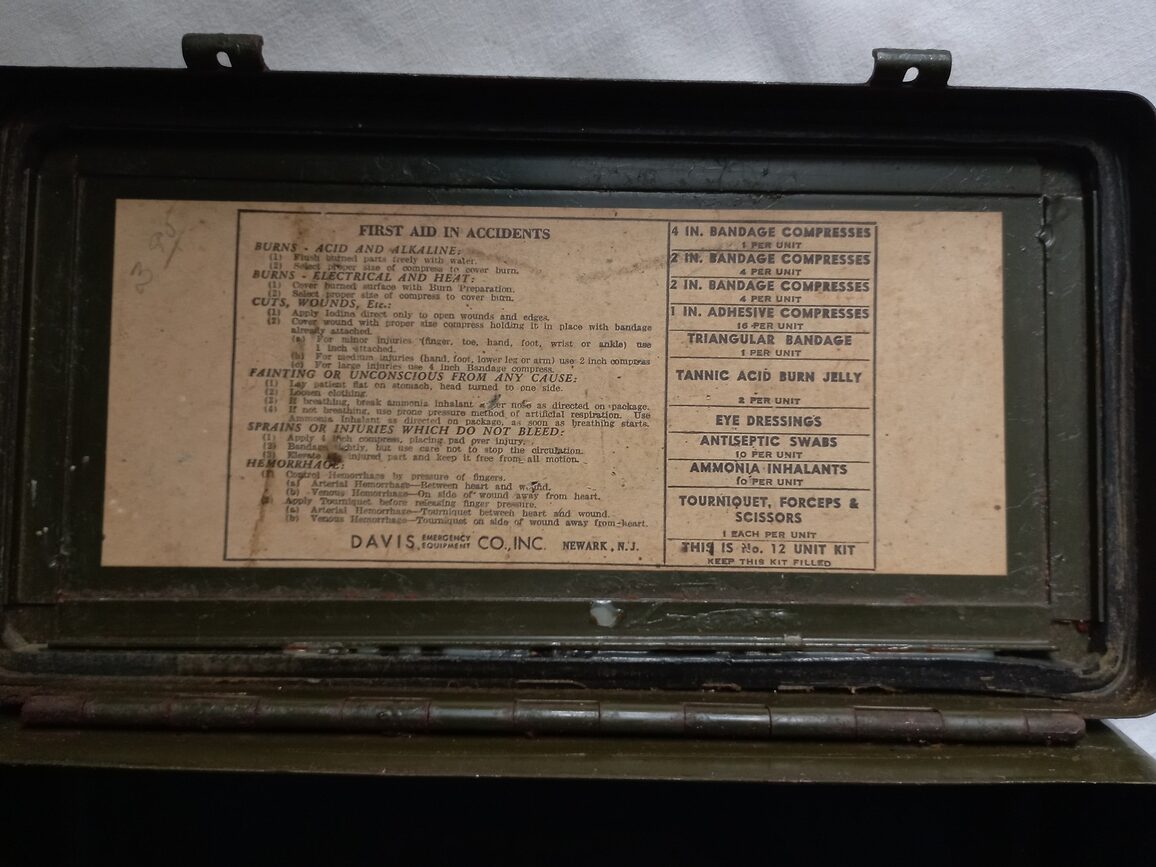 3 95
FIRST AID IN ACCIDENTS
BURNS - ACID AND ALKALINE:
(1) Flush burned parts freely with water.
(2) Select proper size of compress to cover burn.
BURNS - ELECTRICAL AND HEAT:
(1) Cover burned surface with Burn Preparation.
(2) Select proper size of compress to cover burn.
CUTS, WOUNDS, Etc.:
(1) Apply Iodine direct only to open wounds and edges.
(2) Cover wound with proper size compress holding it in place with bandage
already attached.
(a) For minor injuries (finger, toe, hand, foot, wrist or ankle) use
1 inch attached.
(b) For medium injuries (hand, foot, lower leg or arm) use 2 inch compress
(c) For large injuries use 4 inch Bandage compress.
FAINTING OR UNCONSCIOUS FROM ANY CAUSE:
(1) Lay patient flat on stomach, head turned to one side.
(2) Loosen clothing.
(3) If breathing, break ammonia inhalant under nose as directed on package.
(4) If not breathing, use prone pressure method of artificial respiration. Use
Ammonia Inhalant as directed on package, as soon as breathing starts.
SPRAINS OR INJURIES WHICH DO NOT BLEED:
(1) Apply 4 inch compress, placing pad over injury.
(2) Bandage tightly, but use care not to stop the circulation.
(3) Elevate injured part and keep it free from all motion.
HEMORRHAGE:
(1) Control Hemorrhage by pressure of fingers.
(a) Arterial Hemorrhage—Between heart and wound.
(b) Venous Hemorrhage—On side of wound away from heart.
Apply Tourniquet before releasing finger pressure.
(a) Arterial Hemorrhage—Tourniquet between heart and wound.
(b) Venous Hemorrhage—Tourniquet on side of wound away from heart.
DAVIS EMERGENCY EQUIPMENT CO., INC. NEWARK, N.J.
4 IN. BANDAGE COMPRESSES
1 PER UNIT
2 IN. BANDAGE COMPRESSES
4 PER UNIT
2 IN. BANDAGE COMPRESSES
4 PER UNIT
1 IN. ADHESIVE COMPRESSES
16 PER UNIT
TRIANGULAR BANDAGE
1 PER UNIT
TANNIC ACID BURN JELLY
2 PER UNIT
EYE DRESSINGS
ANTISEPTIC SWABS
10 PER UNIT
AMMONIA INHALANTS
10 PER UNIT
TOURNIQUET, FORCEPS &
SCISSORS
1 EACH PER UNIT
THIS IS No. 12 UNIT KIT
KEEP THIS KIT FILLED